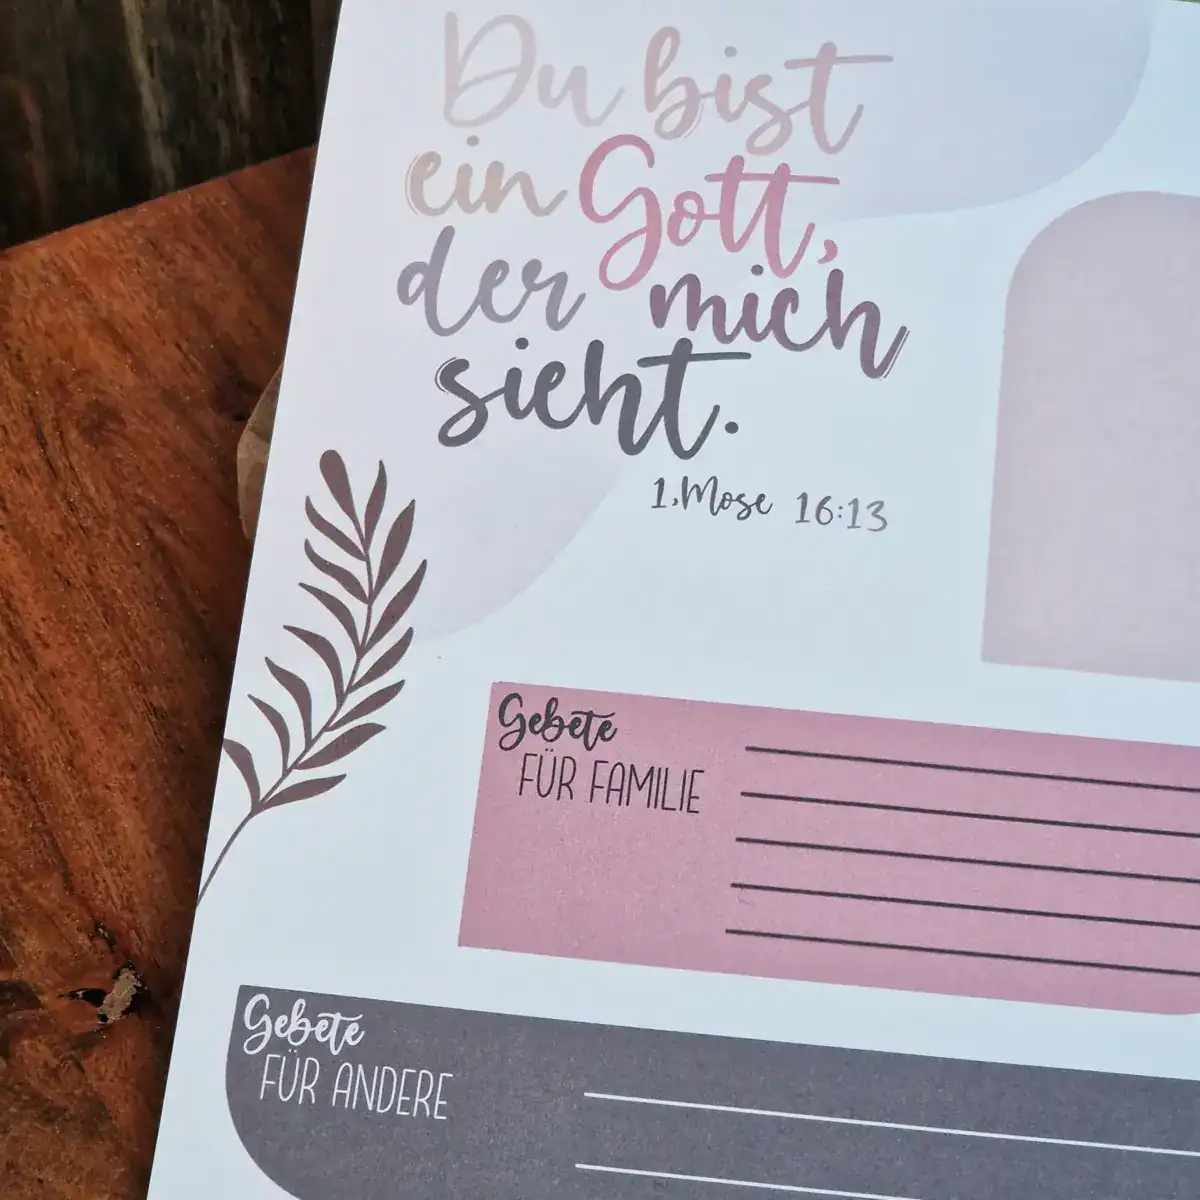 Du bist
ein Gott,
der mich
sieht.
1.Mose 16:13
Gebete
FÜR FAMILIE
Gebete
FÜR ANDERE